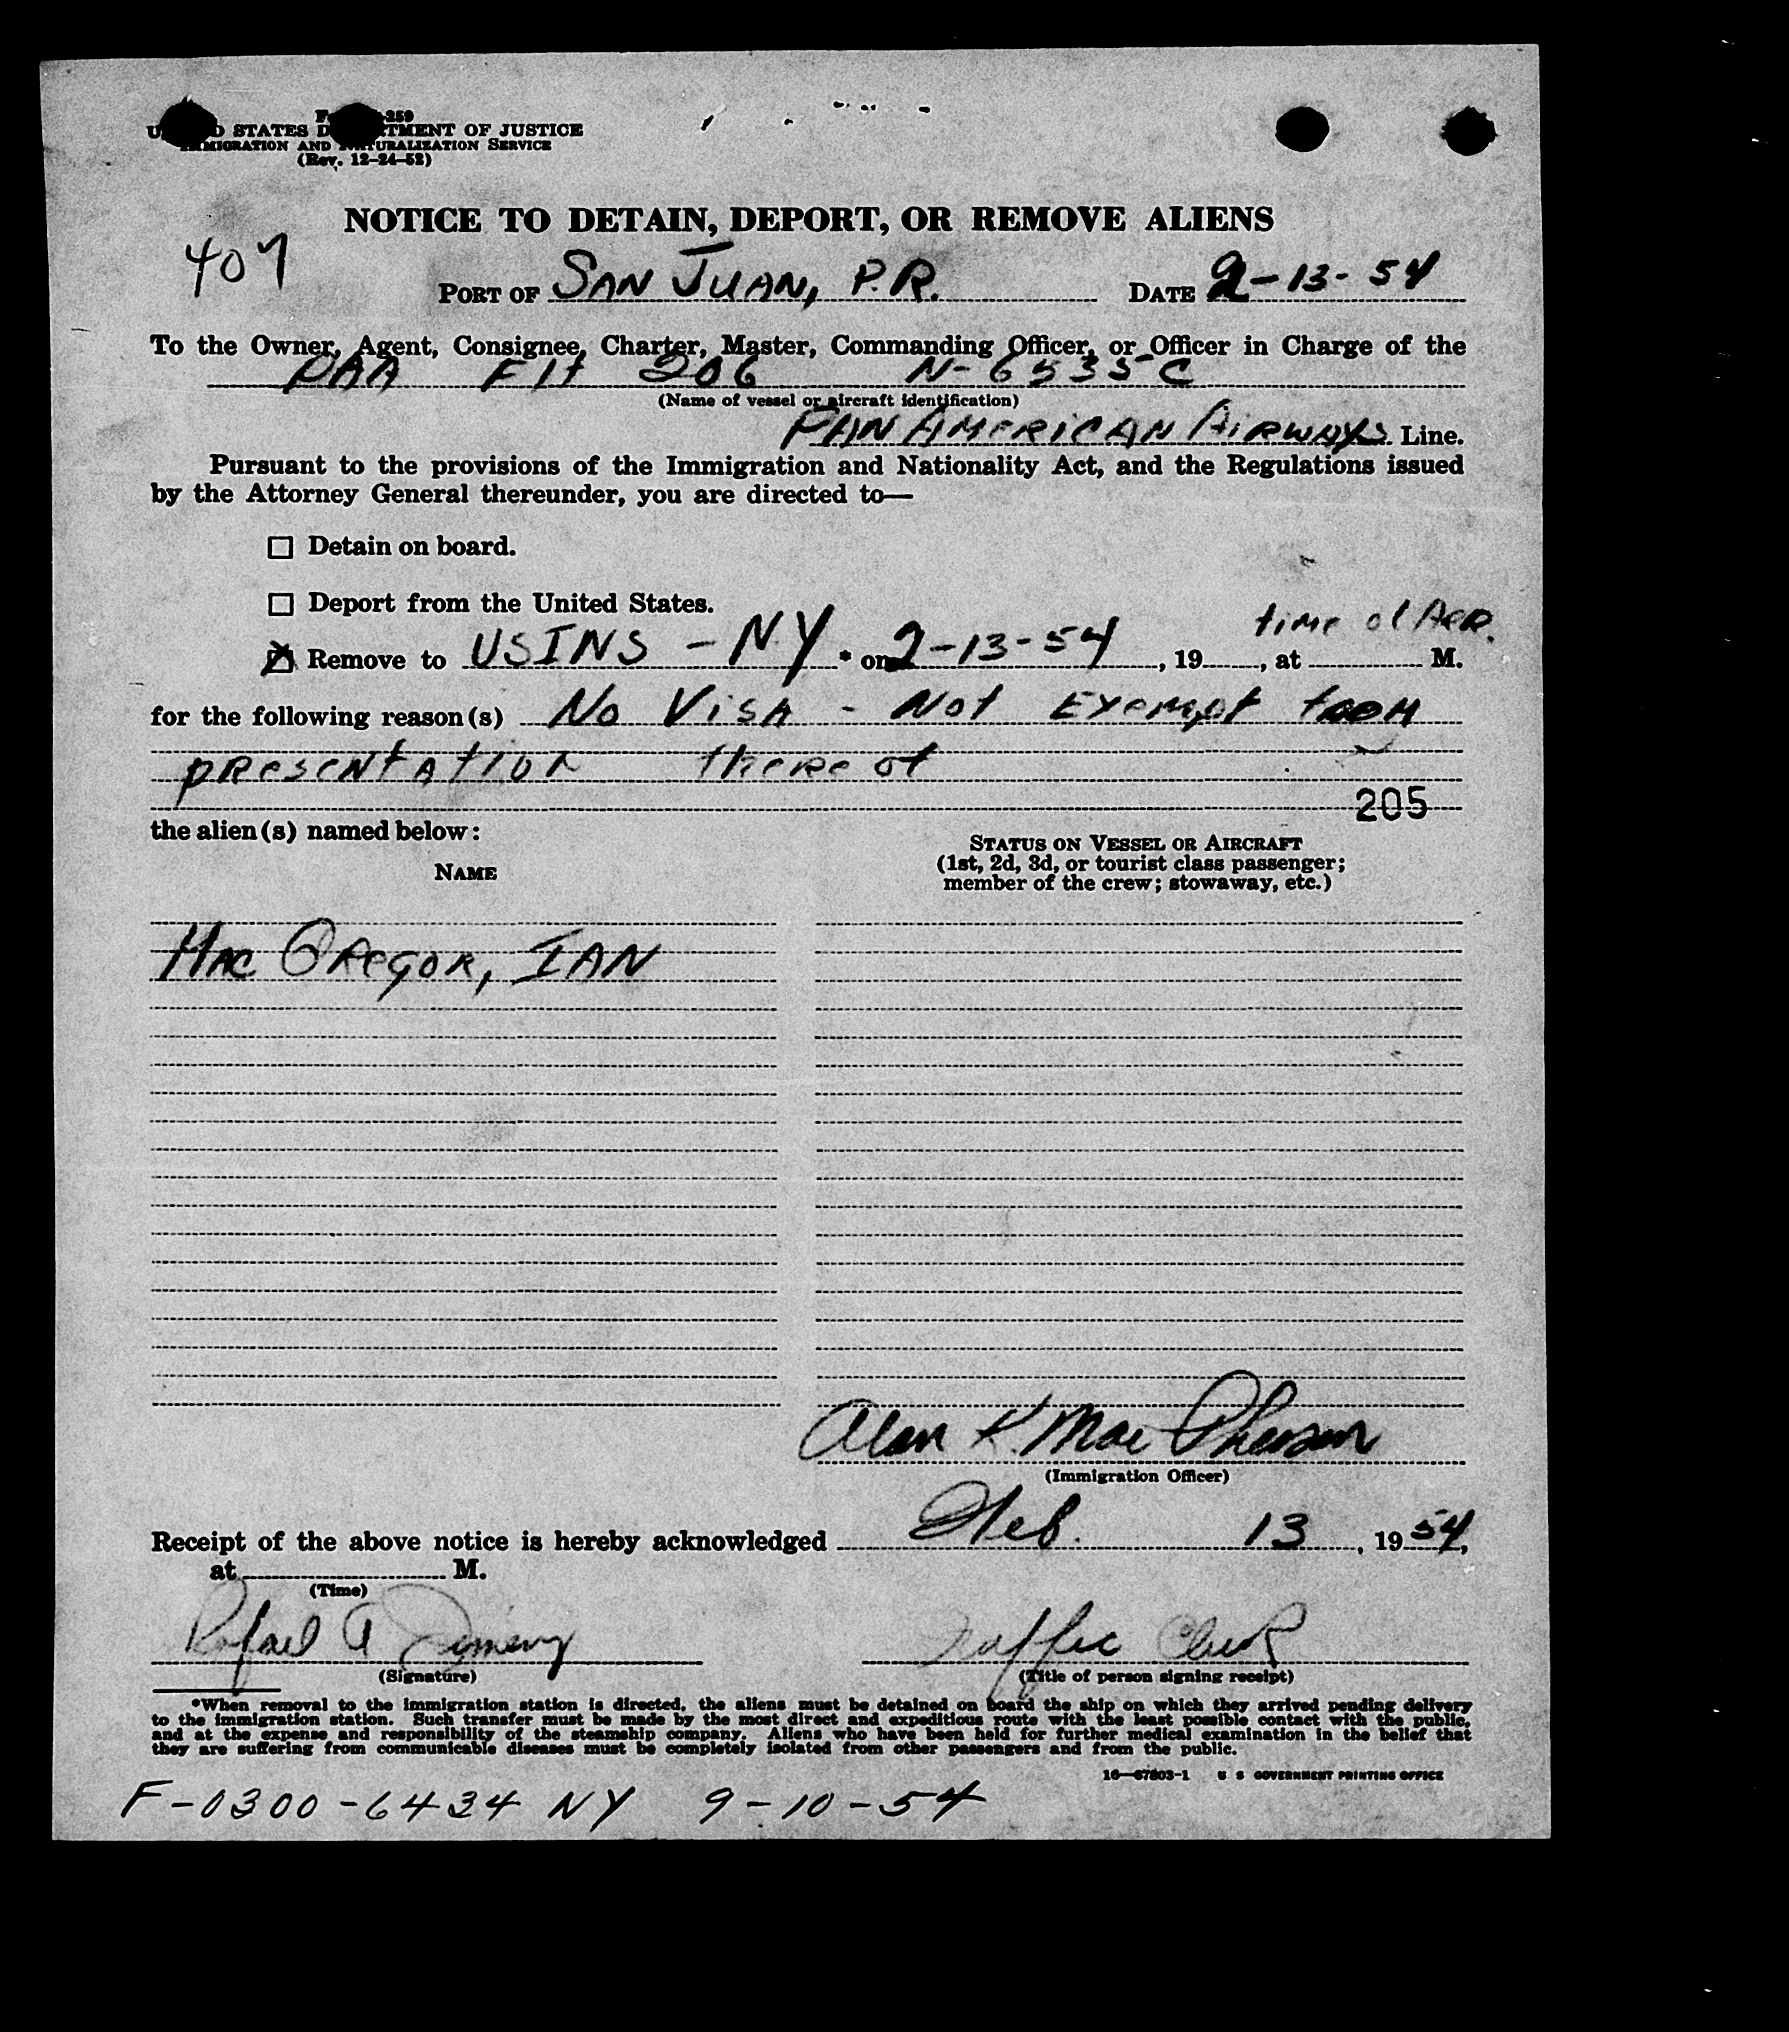 -259
STATES D TMENT OF JUSTICE
IMMIGRATION AND NATURALIZATION SERVICE
(Rev. 12-24-52)
NOTICE TO DETAIN, DEPORT, OR REMOVE ALIENS
407
PORT OF SAN JUAN, P.R. DATE 2-13-54
To the Owner, Agent, Consignee, Charter, Master, Commanding Officer, or Officer in Charge of the
PAA Flt 206 N-6535C
(Name of vessel or aircraft identification)
PAN AMERICAN AIRWAYS Line.
Pursuant to the provisions of the Immigration and Nationality Act, and the Regulations issued
by the Attorney General thereunder, you are directed to—
☐ Detain on board.
☐ Deport from the United States.
time of Arr.
☒ Remove to USINS - NY * on 2-13-54, 19, at M.
for the following reason(s) No Visa - Not Exempt from
presentation thereof
205
the alien(s) named below:
NAME
STATUS ON VESSEL OR AIRCRAFT
(1st, 2d, 3d, or tourist class passenger;
member of the crew; stowaway, etc.)
Mac Gregor, IAN
Alan K. MacPherson
(Immigration Officer)
Receipt of the above notice is hereby acknowledged Feb. 13, 1954,
at M.
(Time)
Rafael A Jimenez
Traffic Clerk
(Signature)
(Title of person signing receipt)
*When removal to the immigration station is directed, the aliens must be detained on board the ship on which they arrived pending delivery
to the immigration station. Such transfer must be made by the most direct and expeditious route with the least possible contact with the public,
and at the expense and responsibility of the steamship company. Aliens who have been held for further medical examination in the belief that
they are suffering from communicable diseases must be completely isolated from other passengers and from the public.
16—67803-1 U S GOVERNMENT PRINTING OFFICE
F-0300-6434 NY 9-10-54